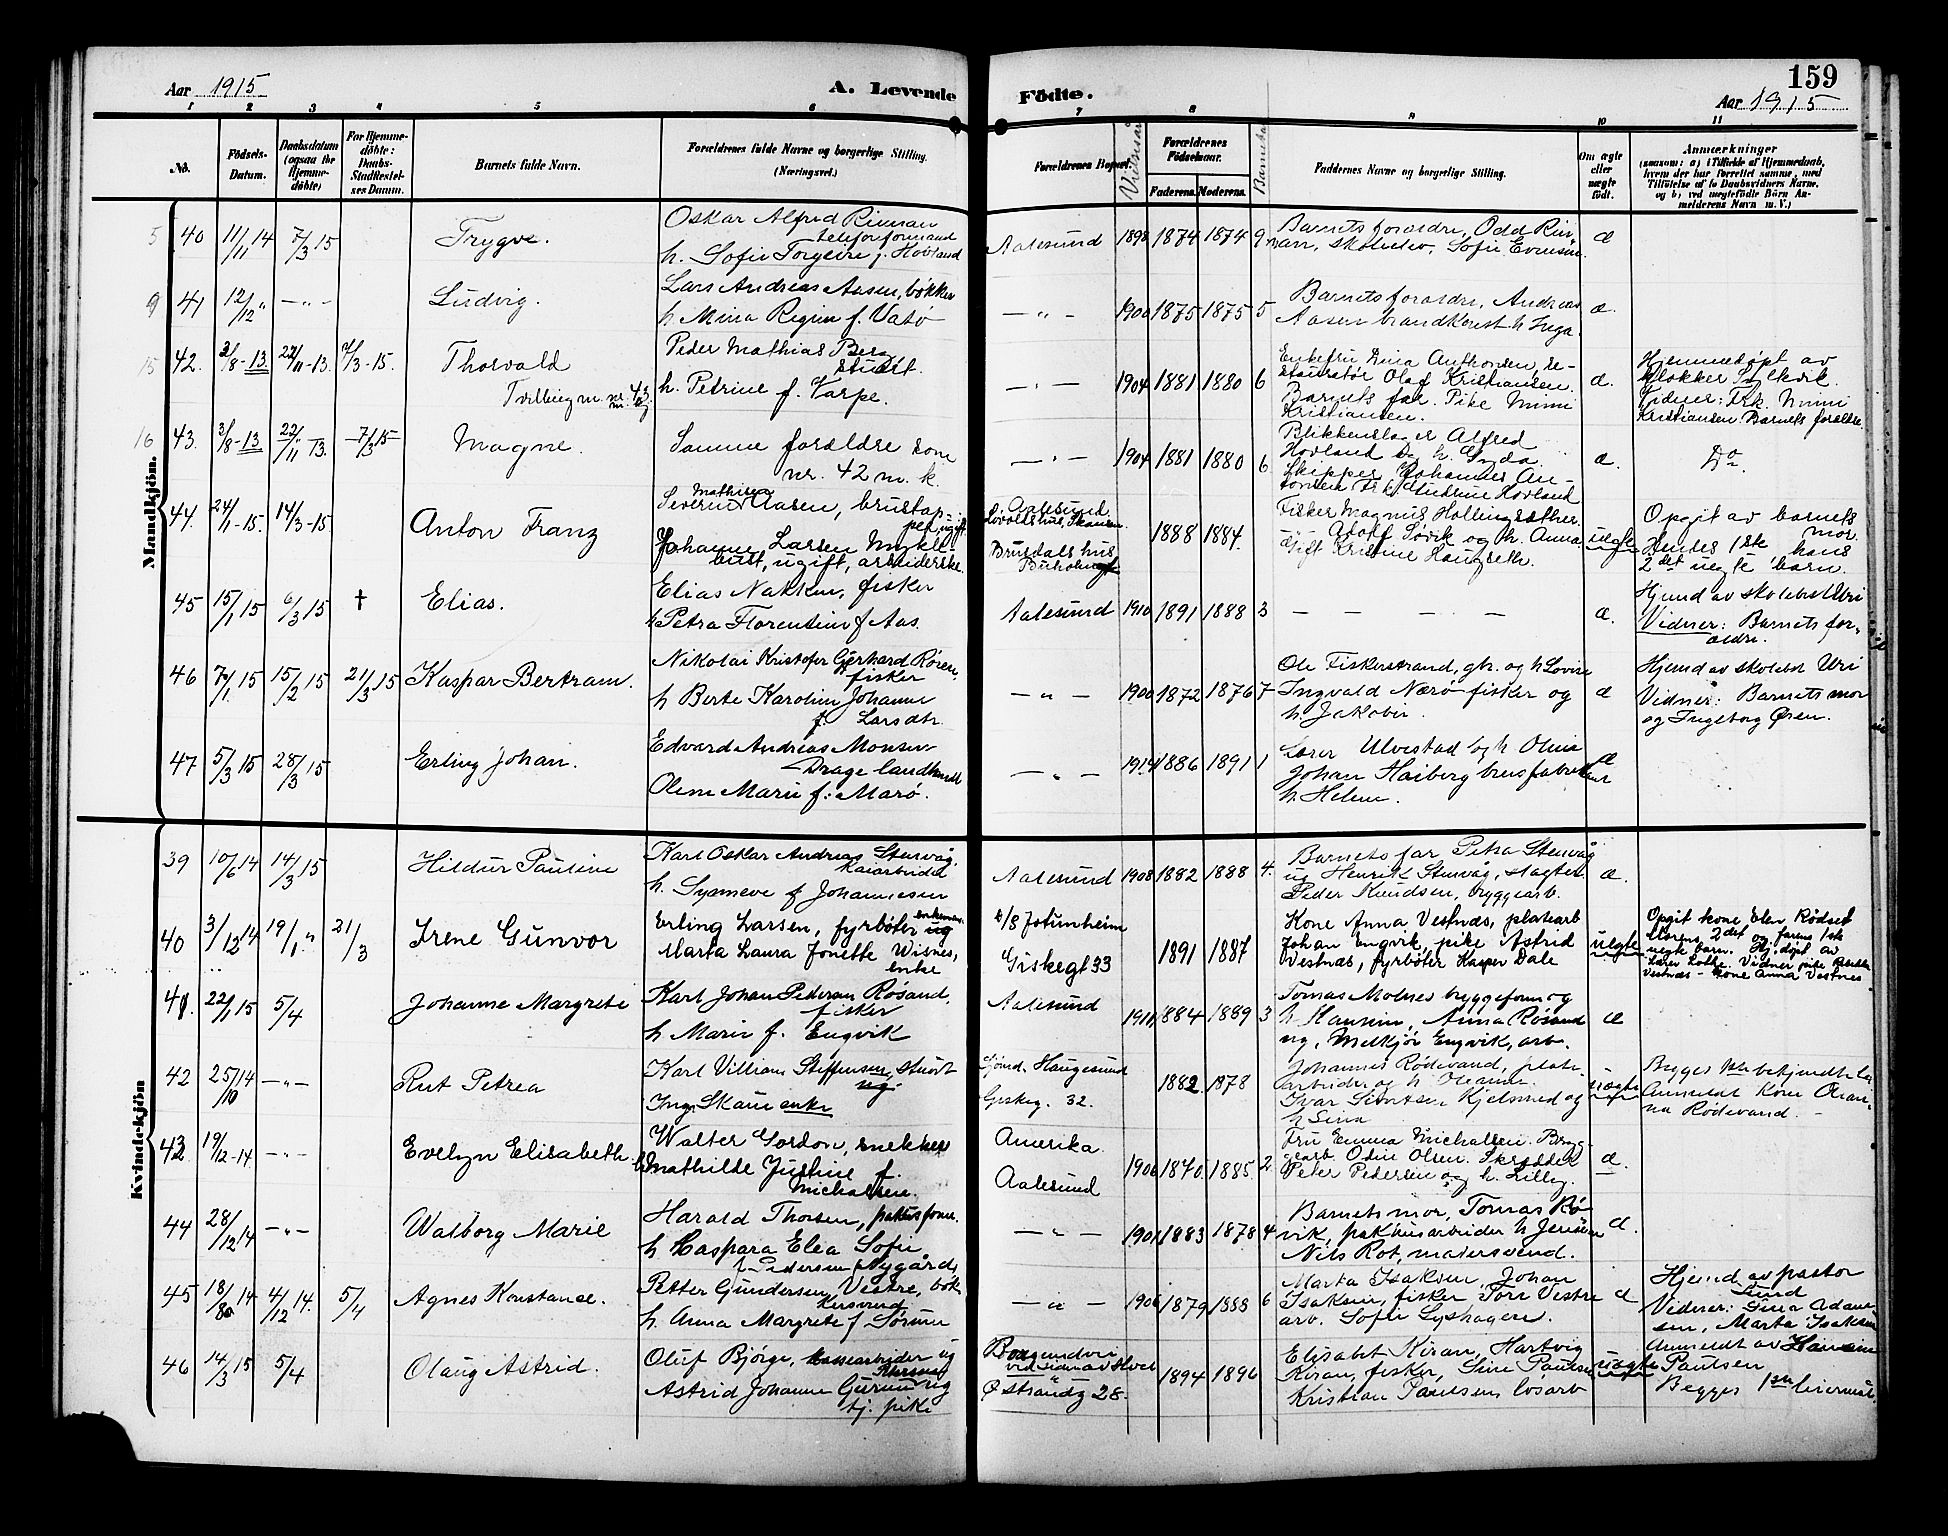 Aar 1915
A. Levende Födte.
159
Aar 1915
1 2 3 4 5 6 7 8 9 10 11
No.
Födsels-Datum.
Daabsdatum (ogsaa for Hjemmedöbte)
For Hjemmedöbte: Daabs-Stadfæstelses Datum.
Barnets fulde Navn.
Forældrenes fulde Navne og borgerlige Stilling. (Næringsvei.)
Forældrenes Bopæl.
Vielsesaar
Forældrenes Födselsaar.
Faderens. Moderens.
Faddernes Navne og borgerlige Stilling.
Om ægte eller uægte födt.
Anmærkninger
Mandkjön.
5 40 11/11 14 7/3 15 Trygve.
Oskar Alfred Rinnan
telefonformand
h. Sofie Torgere f. Hovland
Aalesund 1898 1874 1874 9
Barnets forældre, Odd Rin-
nan, skoleelev, Sofie Evensen
æ
9 41 12/12 " — " — Ludvig.
Lars Andreas Aasen, bökker
h. Mina Regine f. Vatö
— " — 1900 1875 1875 5
Barnets forældre, Andreas
Aasen brandkonst. h. Inga
æ.
15 42. 3/8-13 22/11-13. 7/3-15. Thorvald
Tvilling m. nr. 43.
Peder Mathias Berg
stuert.
h. Petrine f. Varpe.
— " — 1904 1881 1880 6
Enkefru Lina Anthonsen, re-
stauratör Olaf Kristiansen.
Barnets far. Pike Mimi
Kristiansen.
æ.
Hjemmedöpt av
klokker Sylkvik.
Vidner: Frk. Mimi
Kristiansen. Barnets forældre.
16 43. 3/8-13 22/11-13. 7/3 15 Magne.
Samme forældre som
nr. 42 m. k.
— " — 1904 1881 1880 6
Blikkenslager Alfred
Hovland og h. Gyda
Skipper Johannes An-
tonsen Frk. Andrine Hovland
æ.
Do.
44. 24/1-15. 14/3-15 Anton Franz
Mathisen
Severin Aasen, brustap-
per, ugift
Johanne Larsen Mykle-
bust, ugift, arbeiderske.
Aalesund
Lövoldshus, Skansen
Brusdals hus
Buholmgt
1888 1884.
Fisker Magnus Hollingsæther.
Adolf Sövik og h. Anna.
ugift Kristine Haugseth.
uegte
Opgit av barnets
mor.
Hendes 1ste hans
2det uegte barn.
45 15/1 15 6/3 15 † Elias.
Elias Nakken, fisker
h Petra Florentine f Aas.
Aalesund 1910 1891 1888 3
— — — —
æ.
Hjemd av skolebst Uri
Vidner: Barnets for-
ældre.
46 7/1 15 15/2 15 21/3 15 Kaspar Bertram.
Nikolai Kristofer Gerhard Rören,
fisker
h Berte Karoline Johanne
f. Larsdtr.
— " — 1900 1872 1876 7
Ole Fiskerstrand, gbr. og h Lovise
Ingvald Nærö fisker og
h. Jakobie.
æ
Hjemd av skolebst Uri
Vidner: Barnets mor
og Ingeborg Ören.
47 5/3 15 28/3 15 Erling Johan.
Edvard Andreas Monsen
Drage landhandl
Olene Marie f: Marö.
— " — 1914 1886 1891 1
Lærer Ulvestad og h Oline
Johan Haiberg brusfabrikant
h. Helene.
æ
Kvindekjön
39 10/6 14 14/3 15 Hildur Pauline
Karl Oskar Andreas Stenvåg,
kaiarbeider
h. Synneve f Johannesen
Aalesund 1908 1882 1888 4.
Barnets far Petra Stenvåg
ug Henrik Stenvåg, slagter
Peder Knudsen, bryggearb.
æ.
40 3/12 14 19/1 " 21/3 Irene Gunvor
Erling Larsen, fyrböter ug
Marta Laura Jonette Wisnes,
enke
D/S Jotunheim
Giskegt 33
1891 1887
Kone Anna Vestnæs, platearb
Johan Engvik, pike Astrid
Vestnæs, fyrböter Kasper Dale
uegte
Opgit kone Elen Rödset
Morens 2det og farens 1ste
uegte barn. Hj.döpt av
Vestnæs - kone Anna Vestnes
41. 22/1 15 5/4 Johanne Margrete
Karl Johan Pedersen Rösand,
fisker
h Marie f. Engvik
Aalesund 1911 1884 1889 3
Tomas Molnes bryggeform og
h Hansine, Anna Rösand
ug, Melkjör Engvik, arb.
æ
42 25/10 14 — " — Rut Petrea
Karl Villiam Steffensen, stuert
ug.
Inga Skaue enke
Sjömd. Haugesund
Giskeg. 32.
1882 1878
Johannes Rödevand, plate-
arbeider og h Oleanne.
Ivar Sivertsen Hjelmed og
h Sina
uægte
Anmeldt Kone Olean-
na Rödevand. -
43 19/12-14 — " — Evelyn Elisabeth.
Walter Gordon, snekker
h. Mathilde Justine f.
Michalsen.
Amerika.
Aalesund
1906 1870 1885 2
Fru Emma Michalsen. Bryg-
gearb. Odin Olsen. Skrædder
Peter Pedersen og h. Lilly.
æ.
44 28/12 14 — " — Walborg Marie
Harald Thorsen, pakhusform.
h Caspara Elea Sofie
f Pedersen Nygård.
— " — 1901 1883 1878 4
Barnets mor, Tomas Rö-
vik, pakhusarbeider h Jensine
Nils Rot, malersvend.
æ.
45 18/8 14 4/12 14. 5/4 Agnes Konstanse.
Petter Gundersen Vestre, bök-
kersvend
h. Anna Margrete f Sörum
— " — 1906 1879 1888 6
Marta Isaksen, Johan
Isaksen, fisker Tore Vestre
arb. Sofie Lyshagen.
æ
Hjemd. av pastor
Lind
Vidner: Gina Adam-
sen, Marta Isaksen
46 14/3 15 5/4 Olaug Astrid.
Oluf Björge, kassearbeider ug
Astrid Johanne Gurine ug
tj. pike
Borgundvei
Östrandg 28.
1894 1896
Elisabet Kiran, Hartvig
Kiran, fisker, Line Paulsen
Kristian Paulsen lösarb
uægte
Anmeldt av Hansine
Paulsen
Begges 1ste leiermål.